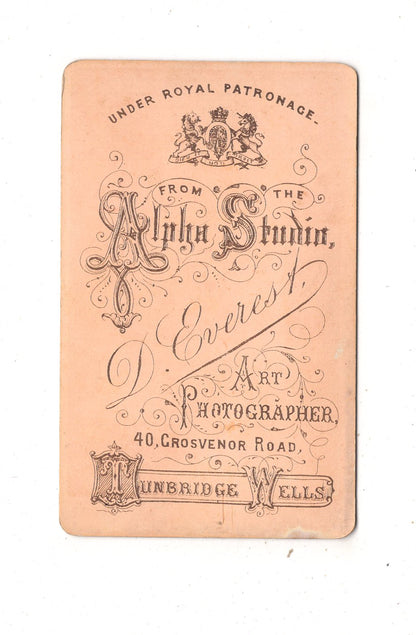 UNDER ROYAL PATRONAGE.
FROM THE
Alpha Studio,
D. Everest.
ART
PHOTOGRAPHER,
40, GROSVENOR ROAD,
TUNBRIDGE WELLS.